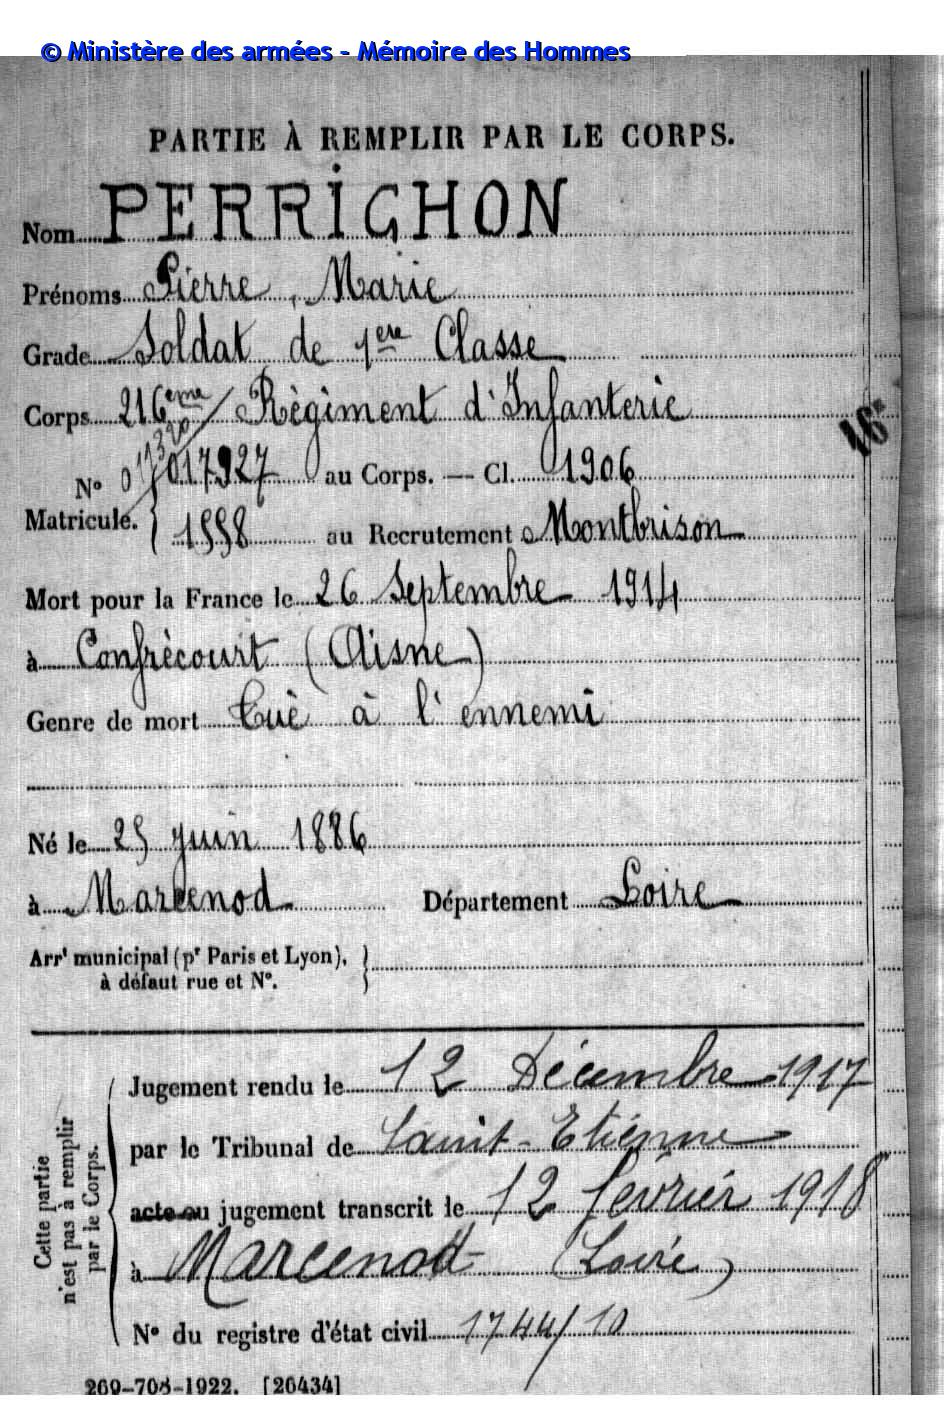 © Ministère des armées - Mémoire des Hommes
PARTIE À REMPLIR PAR LE CORPS.
Nom PERRICHON
Prénoms Pierre, Marie
Grade Soldat de 1ere Classe
Corps 216eme Régiment d'Infanterie
16e
N° 017927 au Corps. — Cl. 1906
Matricule. 1558 au Recrutement Montbrison
Mort pour la France le 26 Septembre 1914
à Confrécourt (Aisne)
Genre de mort Tué à l'ennemi
Né le 25 Juin 1886
à Marcenod Département Loire
Arrt municipal (pr Paris et Lyon),
à défaut rue et N°.
Cette partie
n'est pas à remplir
par le Corps.
Jugement rendu le 12 Décembre 1917
par le Tribunal de Saint-Etienne
acte ou jugement transcrit le 12 février 1918
à Marcenod (Loire)
N° du registre d'état civil 1744/10
269-708-1922. [26434]